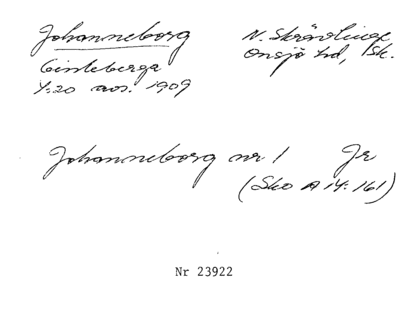 Johanneborg N. Skrävlinge
Gisleberga Onsjö hd, Sk.
1:20 avs. 1909
Johanneborg nr 1 Jr
(Sko A 14:161)
Nr 23922